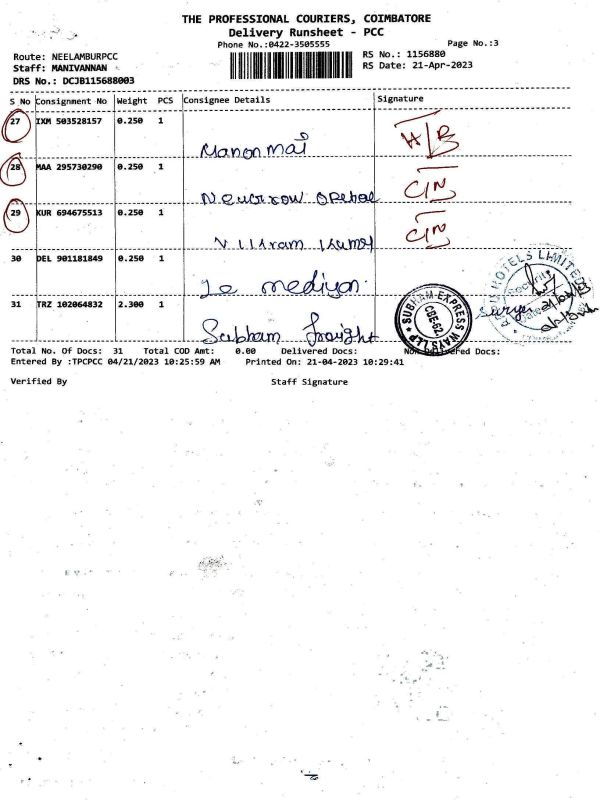 THE PROFESSIONAL COURIERS, COIMBATORE
Delivery Runsheet - PCC
Phone No.:0422-3505555
Page No.:3
Route: NEELAMBURPCC
RS No.: 1156880
Staff: MANIVANNAN
RS Date: 21-Apr-2023
DRS No.: DCJB115688003
S No Consignment No Weight PCS Consignee Details Signature
27 IXM 503528157 0.250 1
H/B
28 MAA 295730290 0.250 1
C/N
29 KUR 694675513 0.250 1
C/N
30 DEL 901181849 0.250 1
Le
31 TRZ 102064832 2.300 1
Subham
SUBHAM EXPRESS WAYS LLP
CBE-62
HOTELS LIMITED
Security
Total No. Of Docs: 31 Total COD Amt: 0.00 Delivered Docs: Non Delivered Docs:
Entered By :TPCPCC 04/21/2023 10:25:59 AM Printed On: 21-04-2023 10:29:41
Verified By Staff Signature